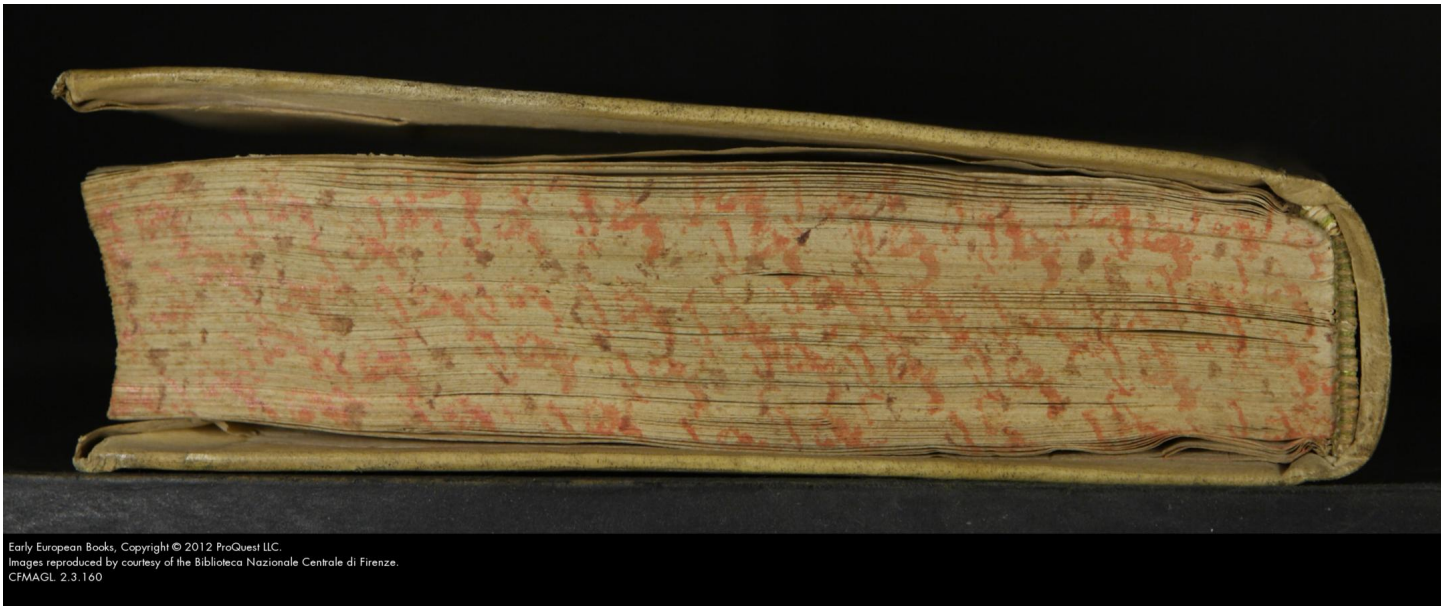 Early European Books, Copyright © 2012 ProQuest LLC.
Images reproduced by courtesy of the Biblioteca Nazionale Centrale di Firenze.
CFMAGL. 2.3.160